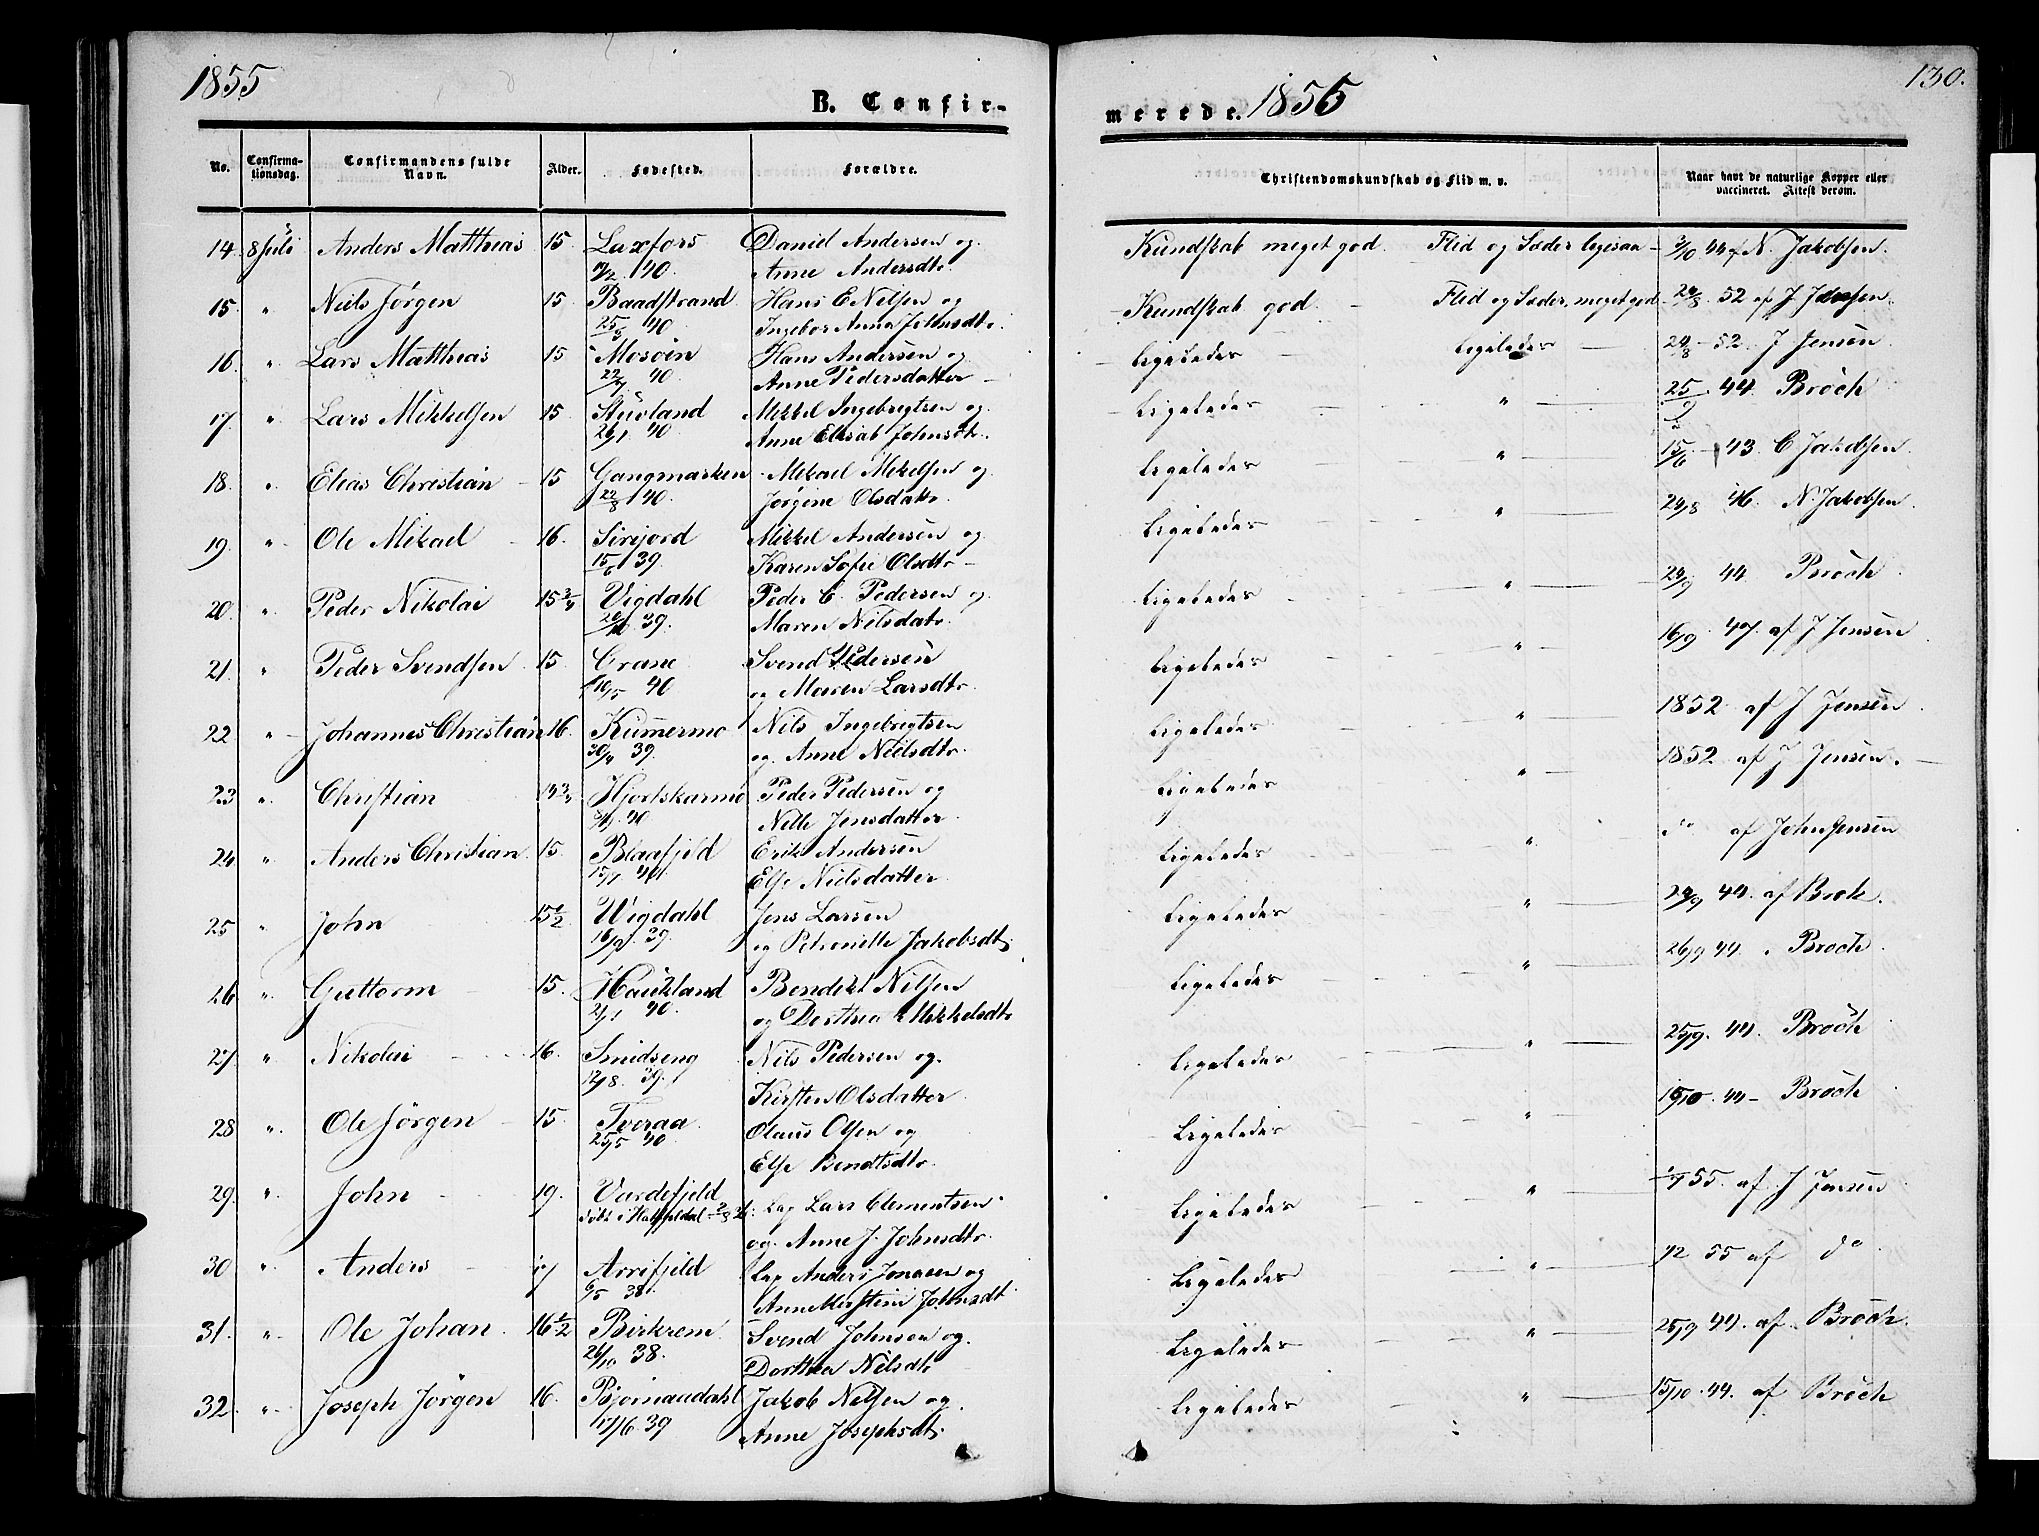 1855
B. Confir-
No.
Confirma-
tionsdag.
Confirmandens fulde
Navn.
Alder.
Fødested.
Forældre.
14. 8 Juli Anders Matthias 15. Laxfors Daniel Andersen og
40. Anne Andersdtr.
15. " Niels Jørgen 15 Baadstrand Hans E Nilsen og
40 Ingebor Anna Johnsdtr.
16. " Lars Matthias 15 Mosöen Hans Andersen og
40. Anne Pedersdatter
17. " Lars Mikkelsen 15. Stuvland Mikkel Ingebrigtsen og
26/1 40. Anne Elisab Johnsdtr.
18. " Elias Christian 15 Gangmarken Mikael Mikelsen og
22/8 40. Jørgine Olsdatr.
19. " Ole Mikael 16. Sirijord Mikkel Andersen og
15/6 39. Karen Sofie Olsdtr
20. " Peder Nikolai 15 3/4 Vigdahl Peder C. Pedersen og
39. Maren Nilsdatr.
21. " Peder Svendsen 15. Grane Svend Pedersen
10/5 40 og Maren Larsdtr.
22 " Johannes Christian 16. Kummermo Nils Ingebrigtsen
39. og. Anne Nielsdtr.
23 " Christian Hjortskarmo Peder Pedersen og
40 Nille Jensdatter.
24 " Anders Christian. 15. Blaafjeld Erik Andersen
Else Nielsdatter.
25 " John 15 1/2 Vigdahl Jens Larsen
39. og Petronille Jakobsdtr.
26 " Guttorm 15. Haukland Bendikt Nilsen
2/1 40. og Dorthea Mikkelsdtr
27 " Nikolai 16. Smidseng Nils Pedersen og
12/8. 39. Kirsten Olsdatter.
28 " Ole Jörgen 15. Tveraa. Olaus Olsen og
25/5 40 Else Bendtsdtr.
29. " John 19. Vardefjeld Lap Lars Clementsen
og. Anne J. Johnsdtr.
30 " Anders 17 Arrefjeld Lap Anders Jonasen og
6/5 38. Anne Johnsdt.
31. " Ole Johan. 16 1/2 Birkrem. Svend Johnson og.
26/10 38. Dorthea Nilsdtr
32. " Joseph Jörgen 16. Bjornaadahl Jakob Nilsen og.
39 Anne Josephsdt.
merede. 1855
130.
Christendomskundskab og Flid m. v.
Naar havt de naturlige Kopper eller
vaccineret. Attest derom.
Kundskab meget god. Flid og Sæder ligesaa 44 af N. Jakobsen.
Kundskab god Flid og Sæder meget god 24/8. 52 af J Jensen.
Ligeledes Ligeledes 24/8 - 52. J Jensen
Ligeledes " 25/9 44. Bröch
Ligeledes " 15/6 43 C Jakobsen.
Ligeledes " 24/8 46. N. Jakobsen
Ligeledes " 24/9 44 Bröch.
Ligeledes " 16/9 47. af J Jensen
Ligeledes " 1852 af J Jensen.
Ligeledes " 1852 af J Jensen.
Ligeledes " do af John Jensen
Ligeledes " 24/9 44. af Brok.
Ligeledes " 26/9 44. Broch.
Ligeledes " 25/9. 44. Bröch
Ligeledes " 44 Bröch
Ligeledes " 55. af J Jensen
Ligeledes " 55 af do
Ligeledes " 25/9 44. af Bröch.
Ligeledes " 15/10. 44. af Bröch